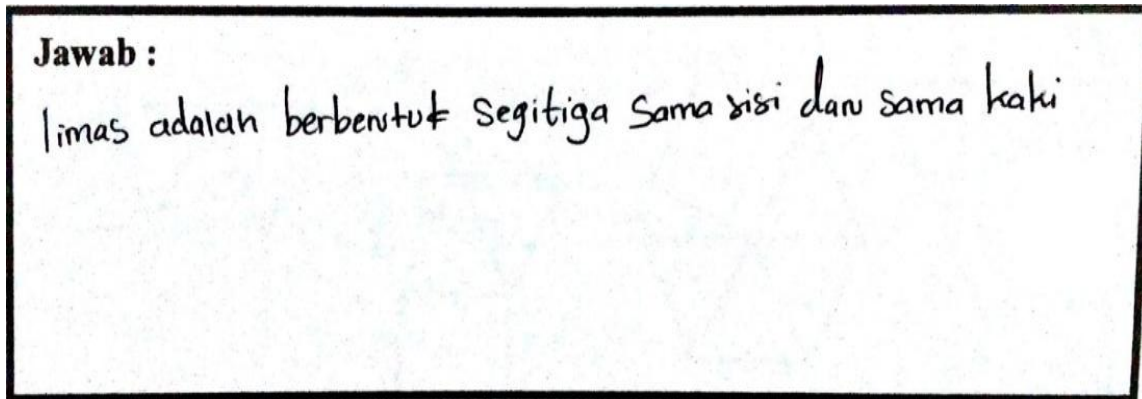 Jawab :
limas adalah berbentuk segitiga sama sisi dan sama kaki